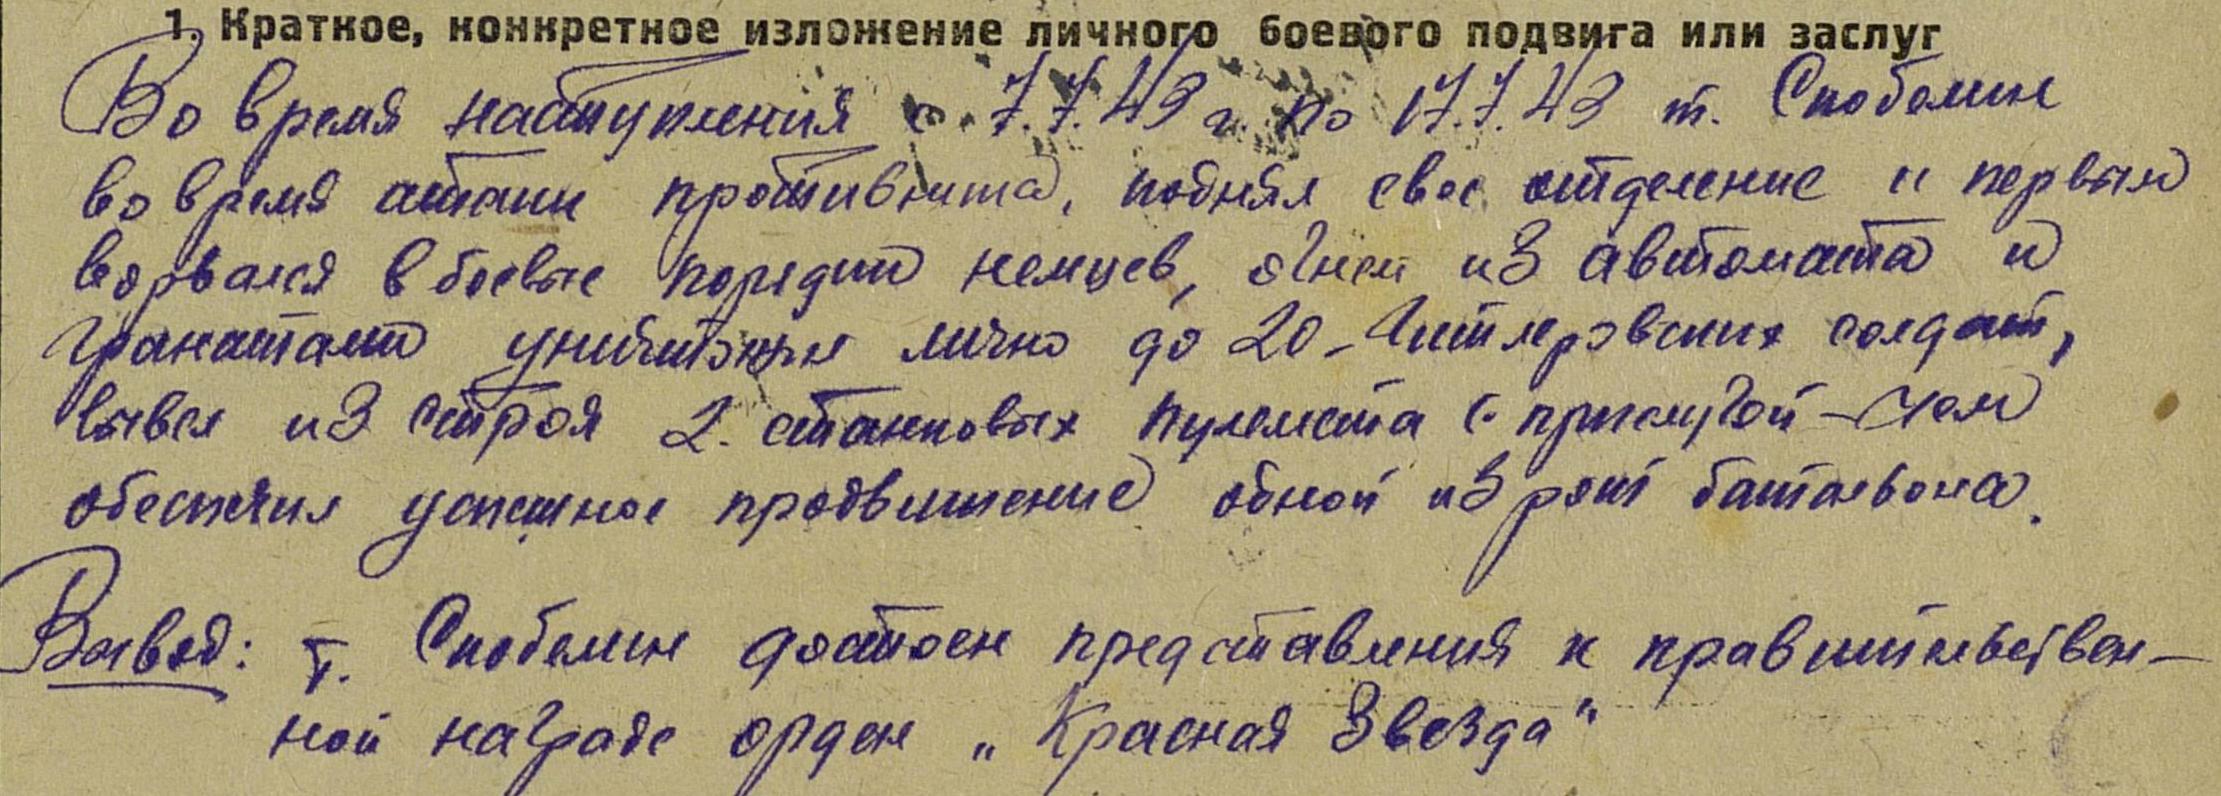 1. Краткое, конкретное изложение личного боевого подвига или заслуг
Во время наступления с 7.7.43 г. по 17.7.43 т. Скобелин
во время атаки противника, поднял свое отделение и первым
ворвался в боевые порядки немцев, огнем из автомата и
гранатами уничтожил лично до 20 - гитлеровских солдат,
вывел из строя 2. станковых пулемета с прислугой - чем
обеспечил успешное продвижение одной из рот батальона.
Вывод: т. Скобелин достоен представления к правительствен-
ной награде орден „Красная Звезда"